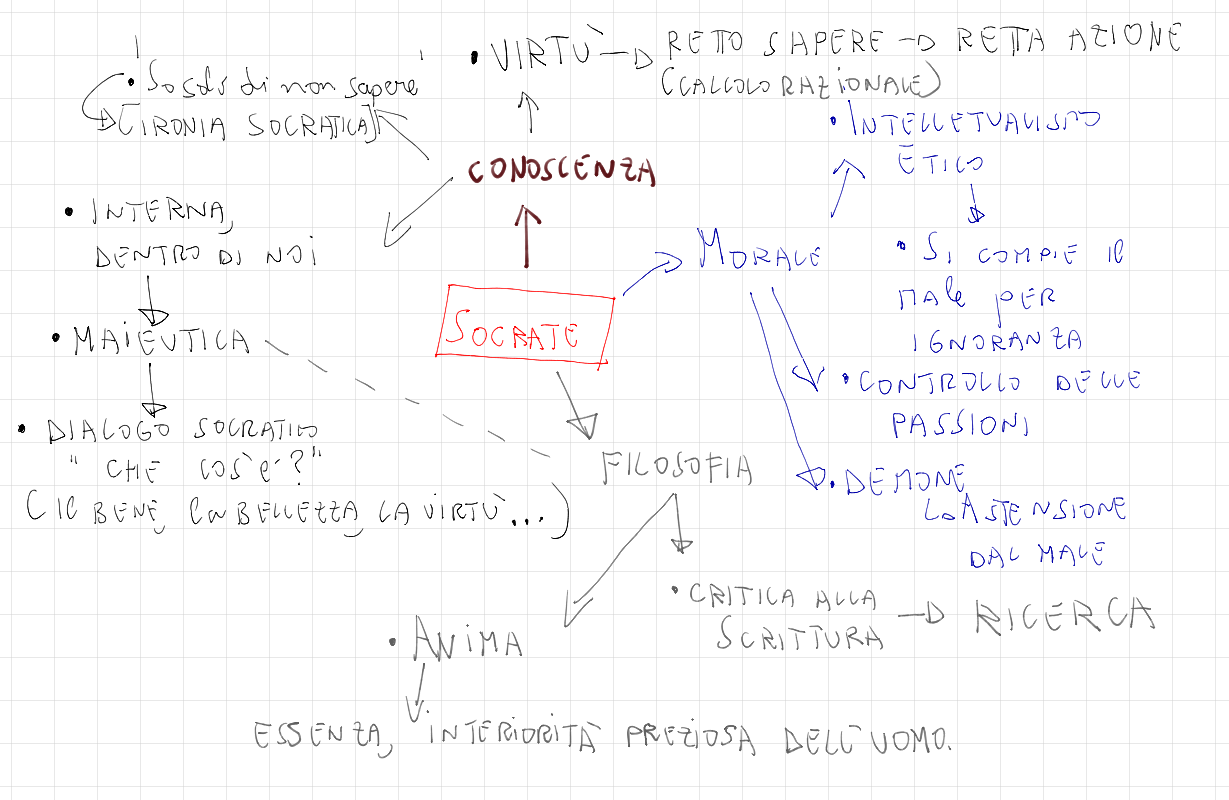 • VIRTÙ → RETTO SAPERE → RETTA AZIONE
(CALCOLO RAZIONALE)
'• So solo di non sapere'
→ [IRONIA SOCRATICA]
CONOSCENZA
• INTERNA,
DENTRO DI NOI
• MAIEUTICA
• DIALOGO SOCRATICO
"CHE COS'È?"
(IL BENE, la BELLEZZA, LA VIRTÙ...)
SOCRATE
MORALE
• INTELLETUALISMO
ETICO
• SI COMPIE IL
MALE PER
IGNORANZA
• CONTROLLO DELLE
PASSIONI
• DEMONE
L→ASTENSIONE
DAL MALE
FILOSOFIA
• CRITICA ALLA
SCRITTURA → RICERCA
• ANIMA
ESSENZA, INTERIORITÀ PREZIOSA DELL'UOMO.